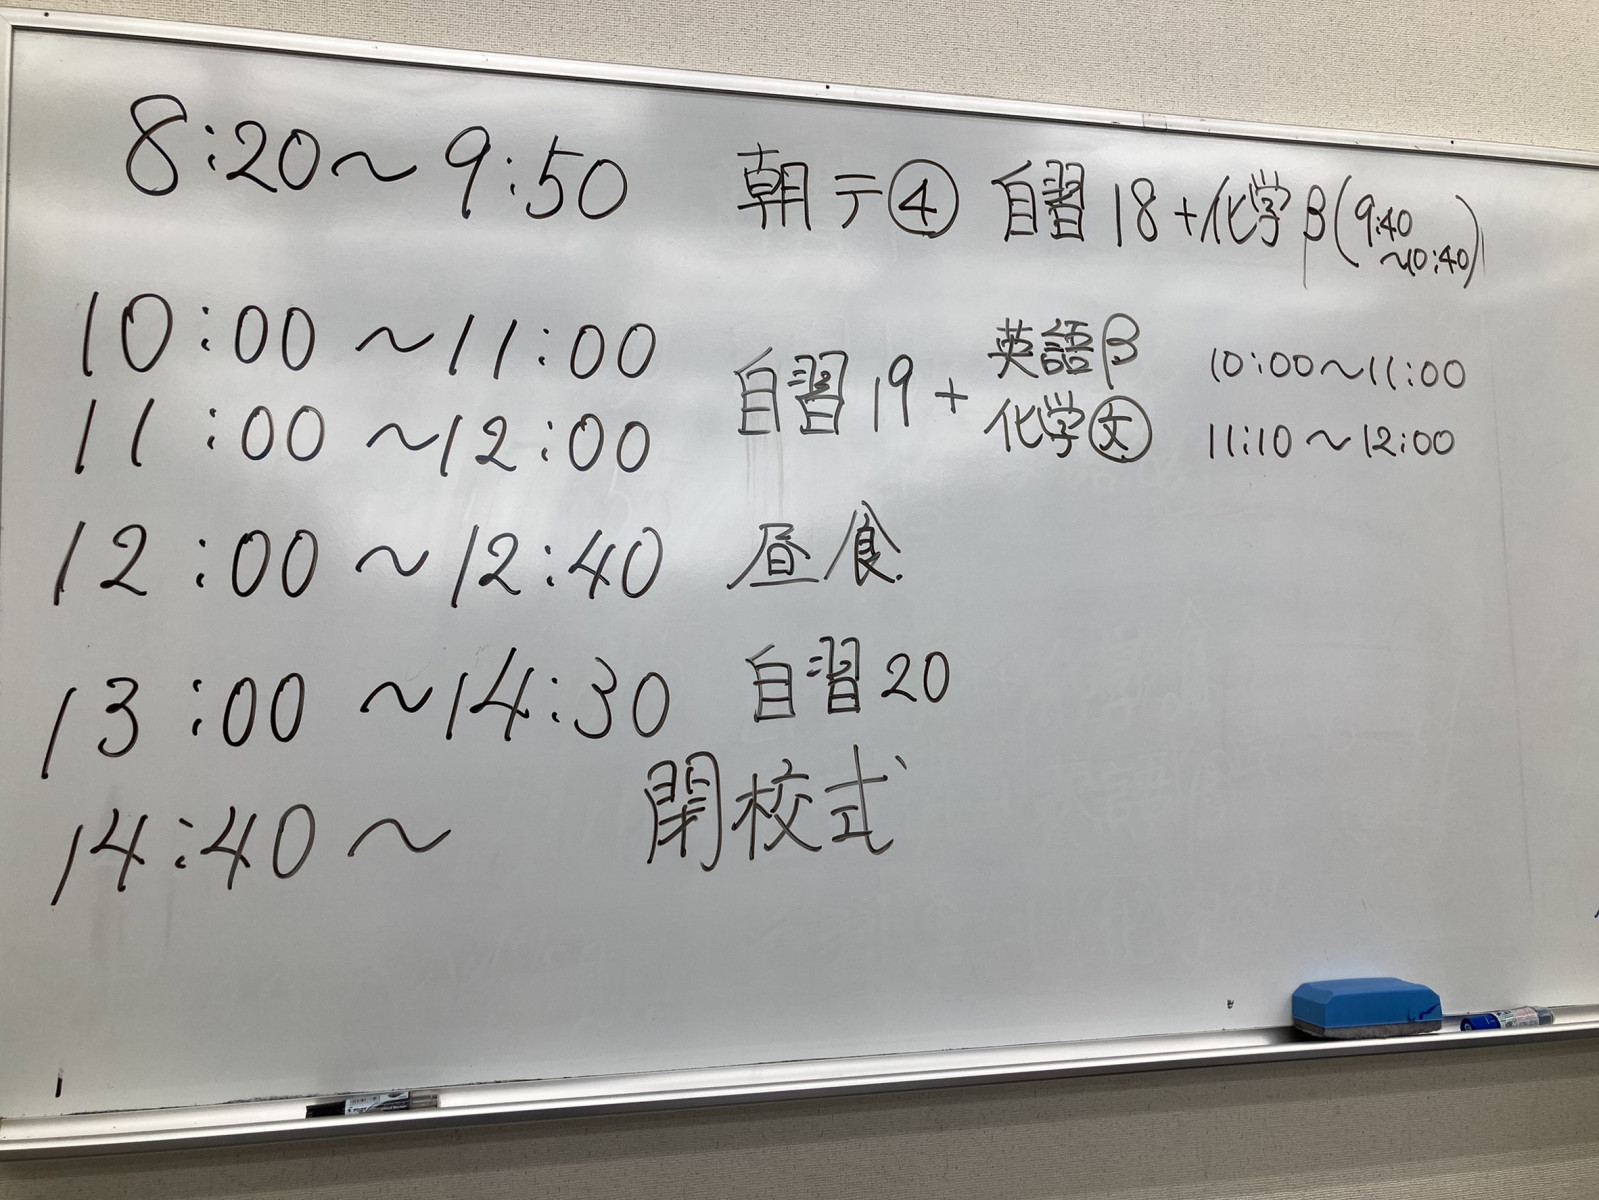 8:20〜9:50 朝テ④ 自習18+化学β(9:40
〜10:40)
10:00〜11:00 自習19+ 英語β 10:00〜11:00
11:00〜12:00 化学㊛ 11:10〜12:00
12:00〜12:40 昼食
13:00〜14:30 自習20
14:40〜 閉校式